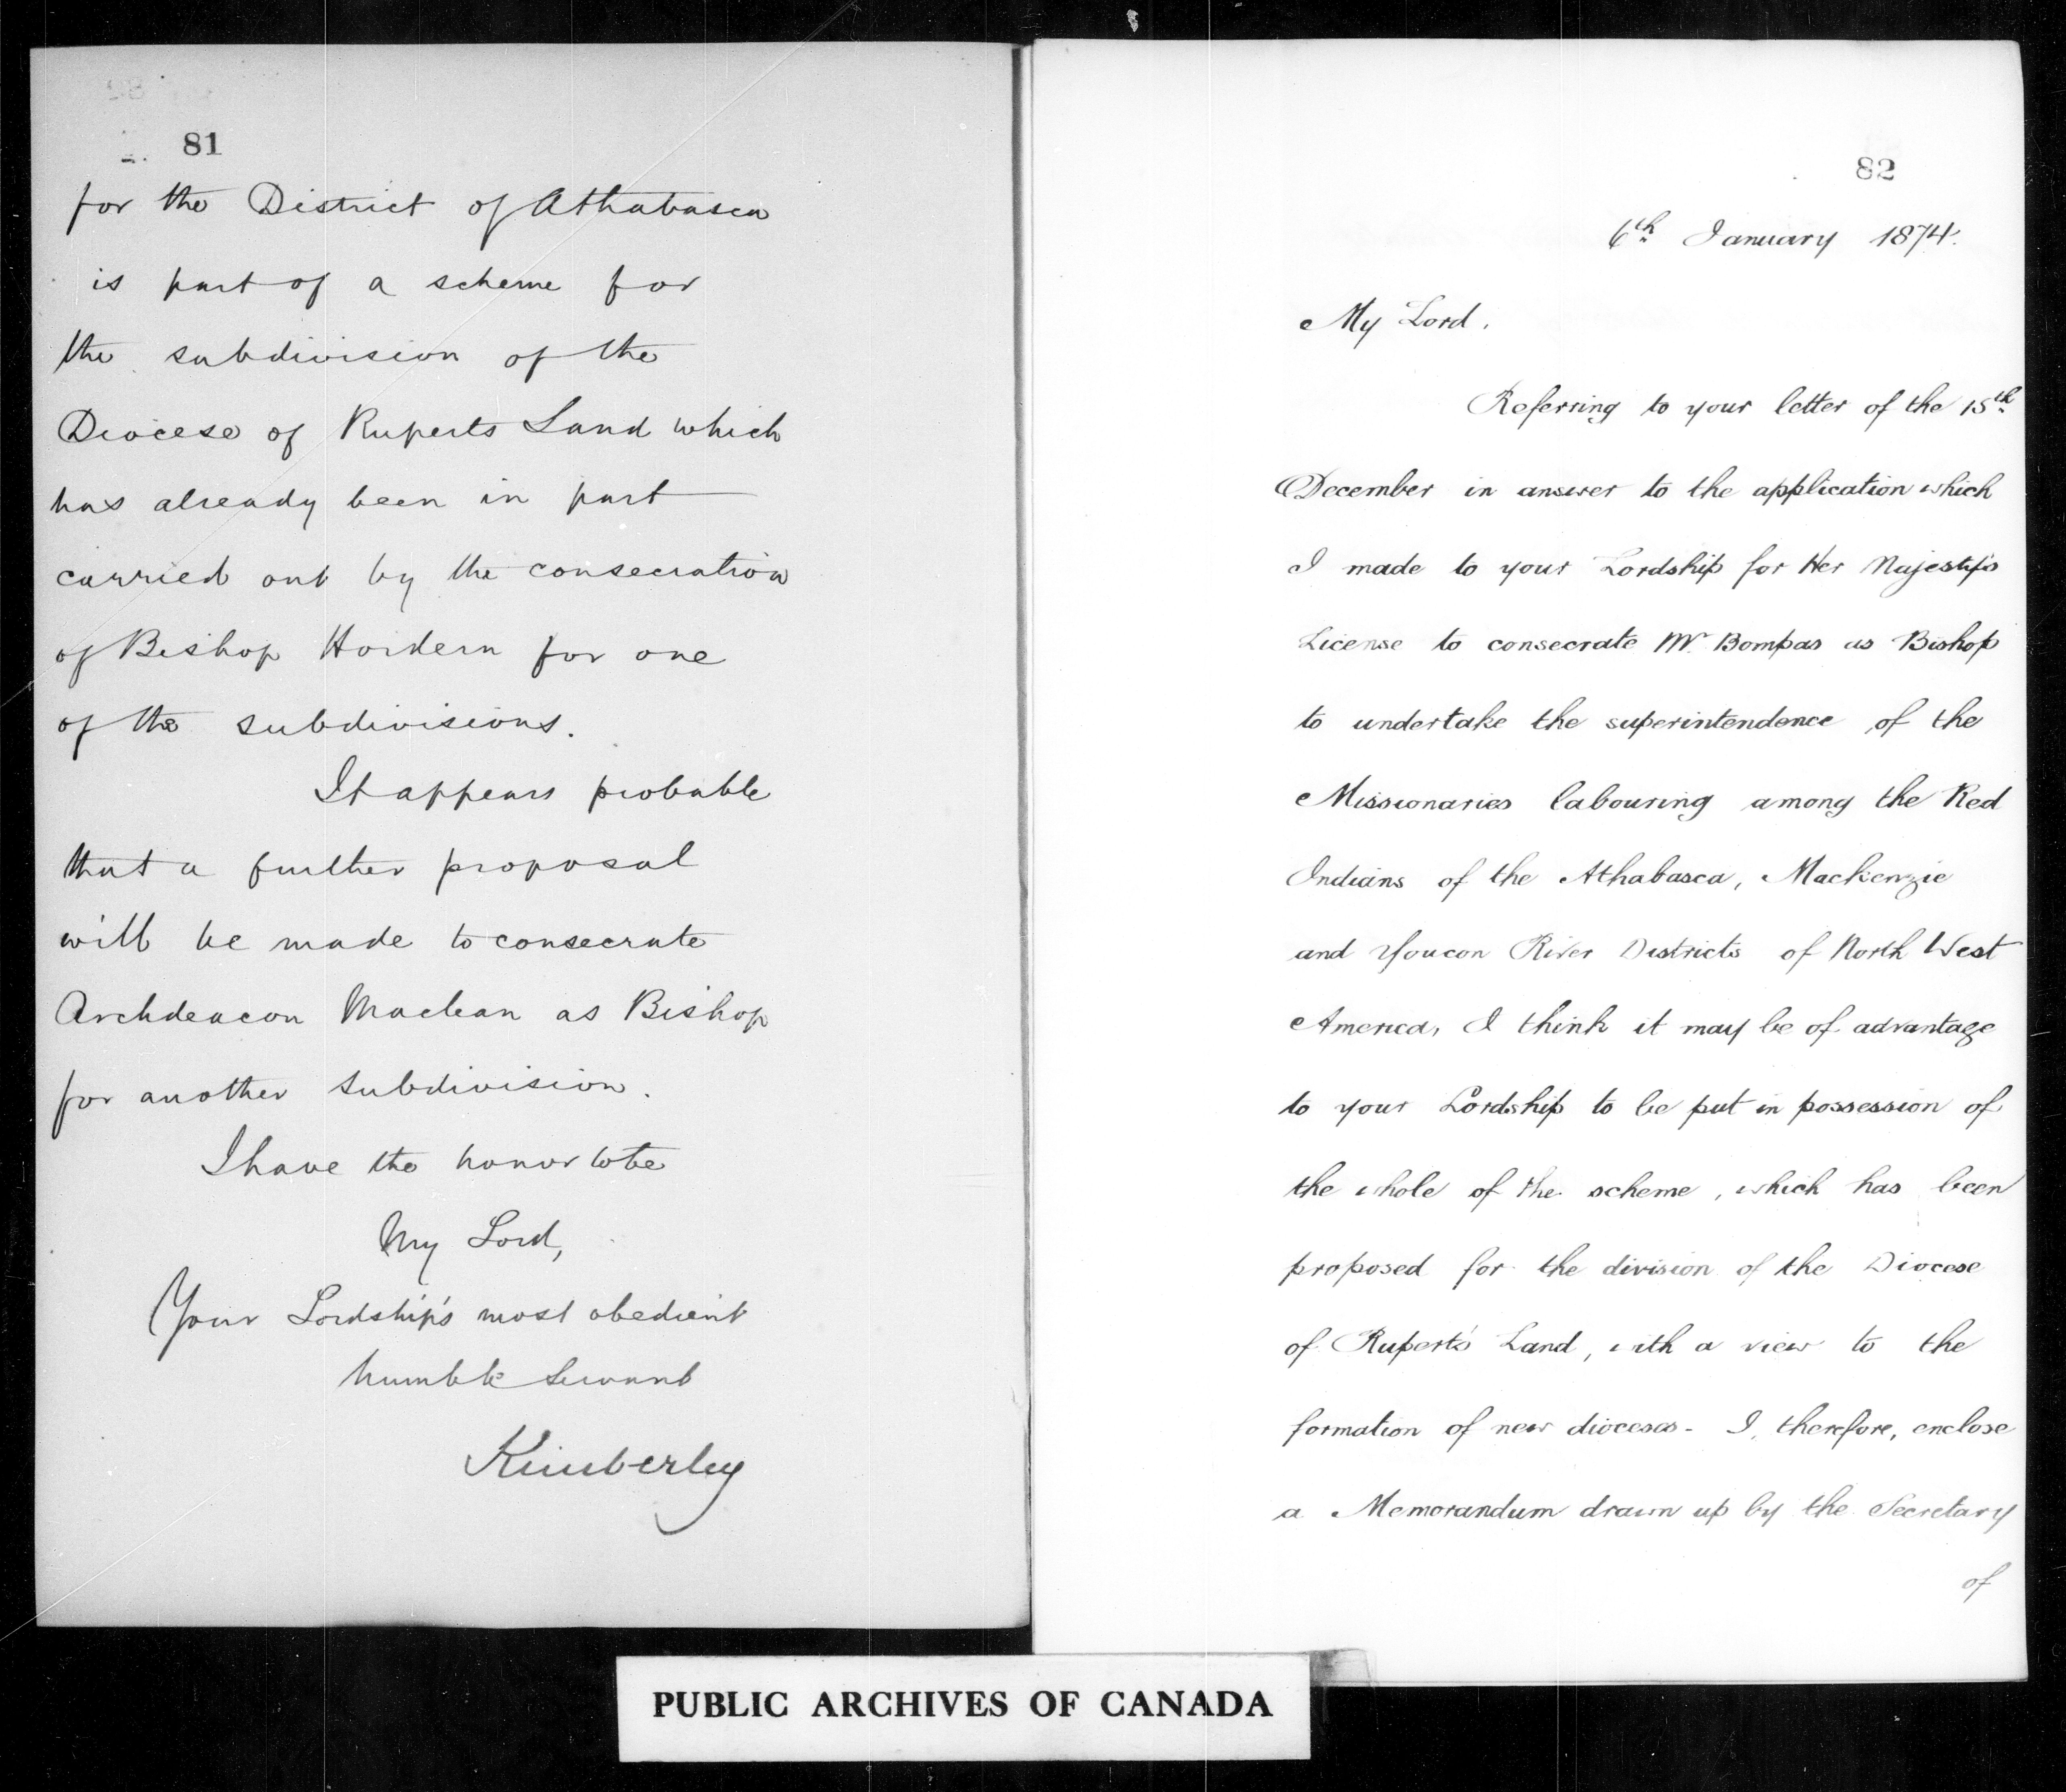 81
for the District of Athabasca
is part of a scheme for
the subdivision of the
Diocese of Ruperts Land which
has already been in part
carried out by the consecration
of Bishop Hordern for one
of the subdivisions.
It appears probable
that a further proposal
will be made to consecrate
Archdeacon Maclean as Bishop
for another subdivision.
I have the honor to be
My Lord,
Your Lordship's most obedient
humble servant
Kimberley
82
6th January 1874.
My Lord,
Referring to your letter of the 15th
December in answer to the application which
I made to your Lordship for Her Majesty's
License to consecrate Mr Bompas as Bishop
to undertake the superintendence of the
Missionaries labouring among the Red
Indians of the Athabasca, Mackenzie
and Youcon River Districts of North West
America, I think it may be of advantage
to your Lordship to be put in possession of
the whole of the scheme, which has been
proposed for the division of the Diocese
of Rupert's Land, with a view to the
formation of new dioceses - I, therefore, enclose
a Memorandum drawn up by the Secretary
of
PUBLIC ARCHIVES OF CANADA